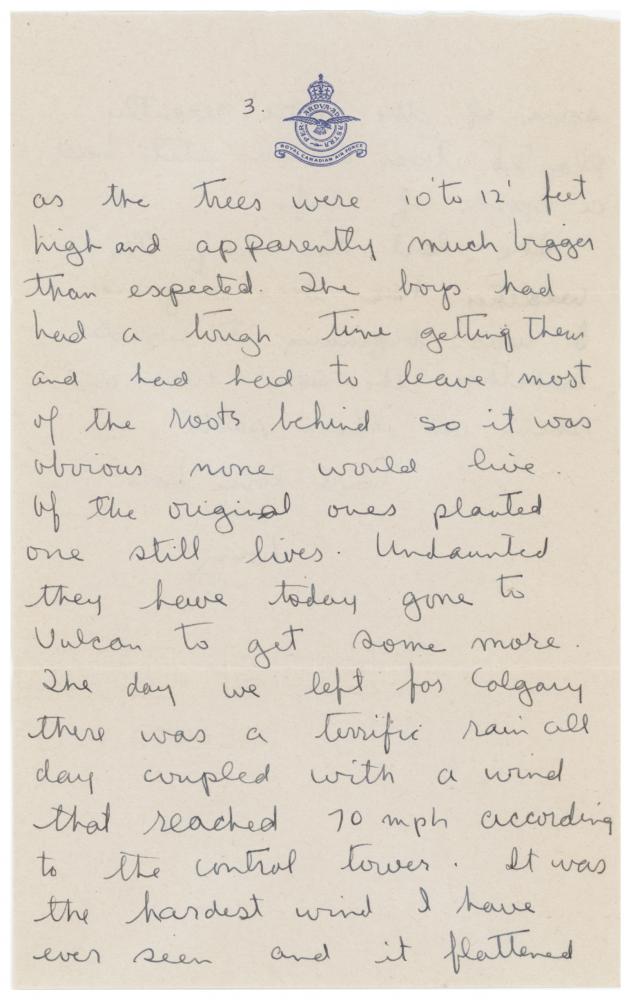 3.
PER ARDVA AD ASTRA
ROYAL CANADIAN AIR FORCE
as the trees were 10' to 12' feet
high and apparently much bigger
than expected. The boys had
had a tough time getting them
and had had to leave most
of the roots behind so it was
obvious none would live.
Of the original ones planted
one still lives. Undaunted
they have today gone to
Vulcan to get some more.
The day we left for Calgary
there was a terrific rain all
day coupled with a wind
that reached 70 mph according
to the control tower. It was
the hardest wind I have
ever seen and it flattened